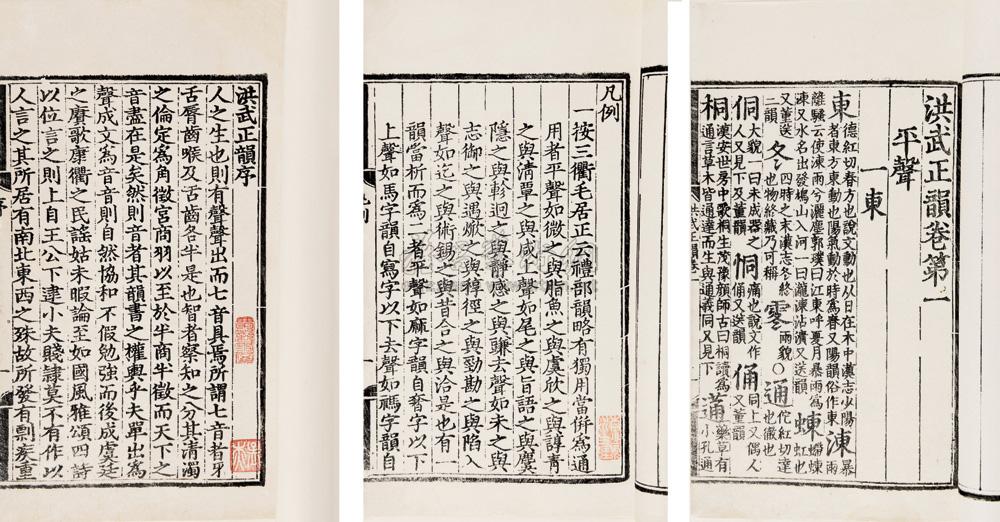 洪武正韻序
人之生也則有聲聲出而七音具焉所謂七音者牙
舌脣齒喉及舌齒各半是也智者察知之分其清濁
之倫定為角徵宮商羽以至於半商半徵而天下之
音盡在是矣然則音者其韻書之權輿乎夫單出為
聲成文為音音則自然協和不假勉強而後成虞廷
之賡歌康衢之民謠姑未暇論至如國風雅頌四詩
以位言之則上自王公下逮小夫賤隸莫不有作以
人言之其所居有南北東西之殊故所發有剽疾重
凡例
一按三衢毛居正云禮部韻略有獨用當併為通
用者平聲如微之與脂魚之與虞欣之與諄青
之與清覃之與咸上聲如尾之與旨語之與麌
隱之與軫迥之與靜感之與豏去聲如未之與
志御之與遇焮之與稕徑之與勁勘之與陷入
聲如迄之與術錫之與昔合之與洽是也有一
韻當析而為二者平聲如麻字韻自奢字以下
上聲如馬字韻自寫字以下去聲如禡字韻自
洪武正韻卷第一
平聲
一東
東德紅切春方也說文動也从日在木中漢志少陽者東方東動也陽氣動於時為春又陽韻俗作東涷暴雨
離騷云使涷雨兮灑塵郭璞曰江東呼夏月暴雨為涷又水名出發鳩山入河一曰瀧涷沾漬又送韻蝀螮蝀虹也
又董送二韻冬四時之末漢志冬終也物終藏乃可稱雨貌○通佗紅切達也徹也
侗大貌一曰未成器之人又見下及董韻恫痛也說文作同上又俑又送韻俑偶人又董韻
桐漢安世房中歌桐生茂豫顏師古曰桐讀為通言草木皆通達而生與通義同又見下蓪藥草有小孔通
洪武正韻卷一